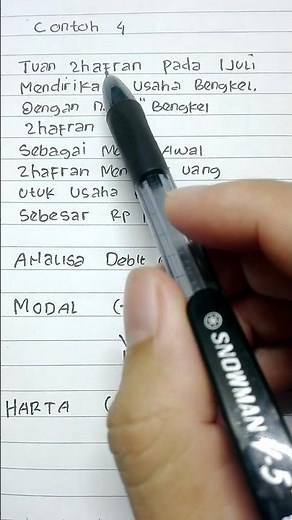 Contoh 4
Tuan Zhafran Pada 1 Juli
Mendirika Usaha Bengkel.
Dengan Bengkel
Zhafran
Sebagai Awal
Zhafran Men uang
utuk Usaha
Sebesar Rp
Analisa Debit
MODAL (
HARTA (
SNOWMAN V-5